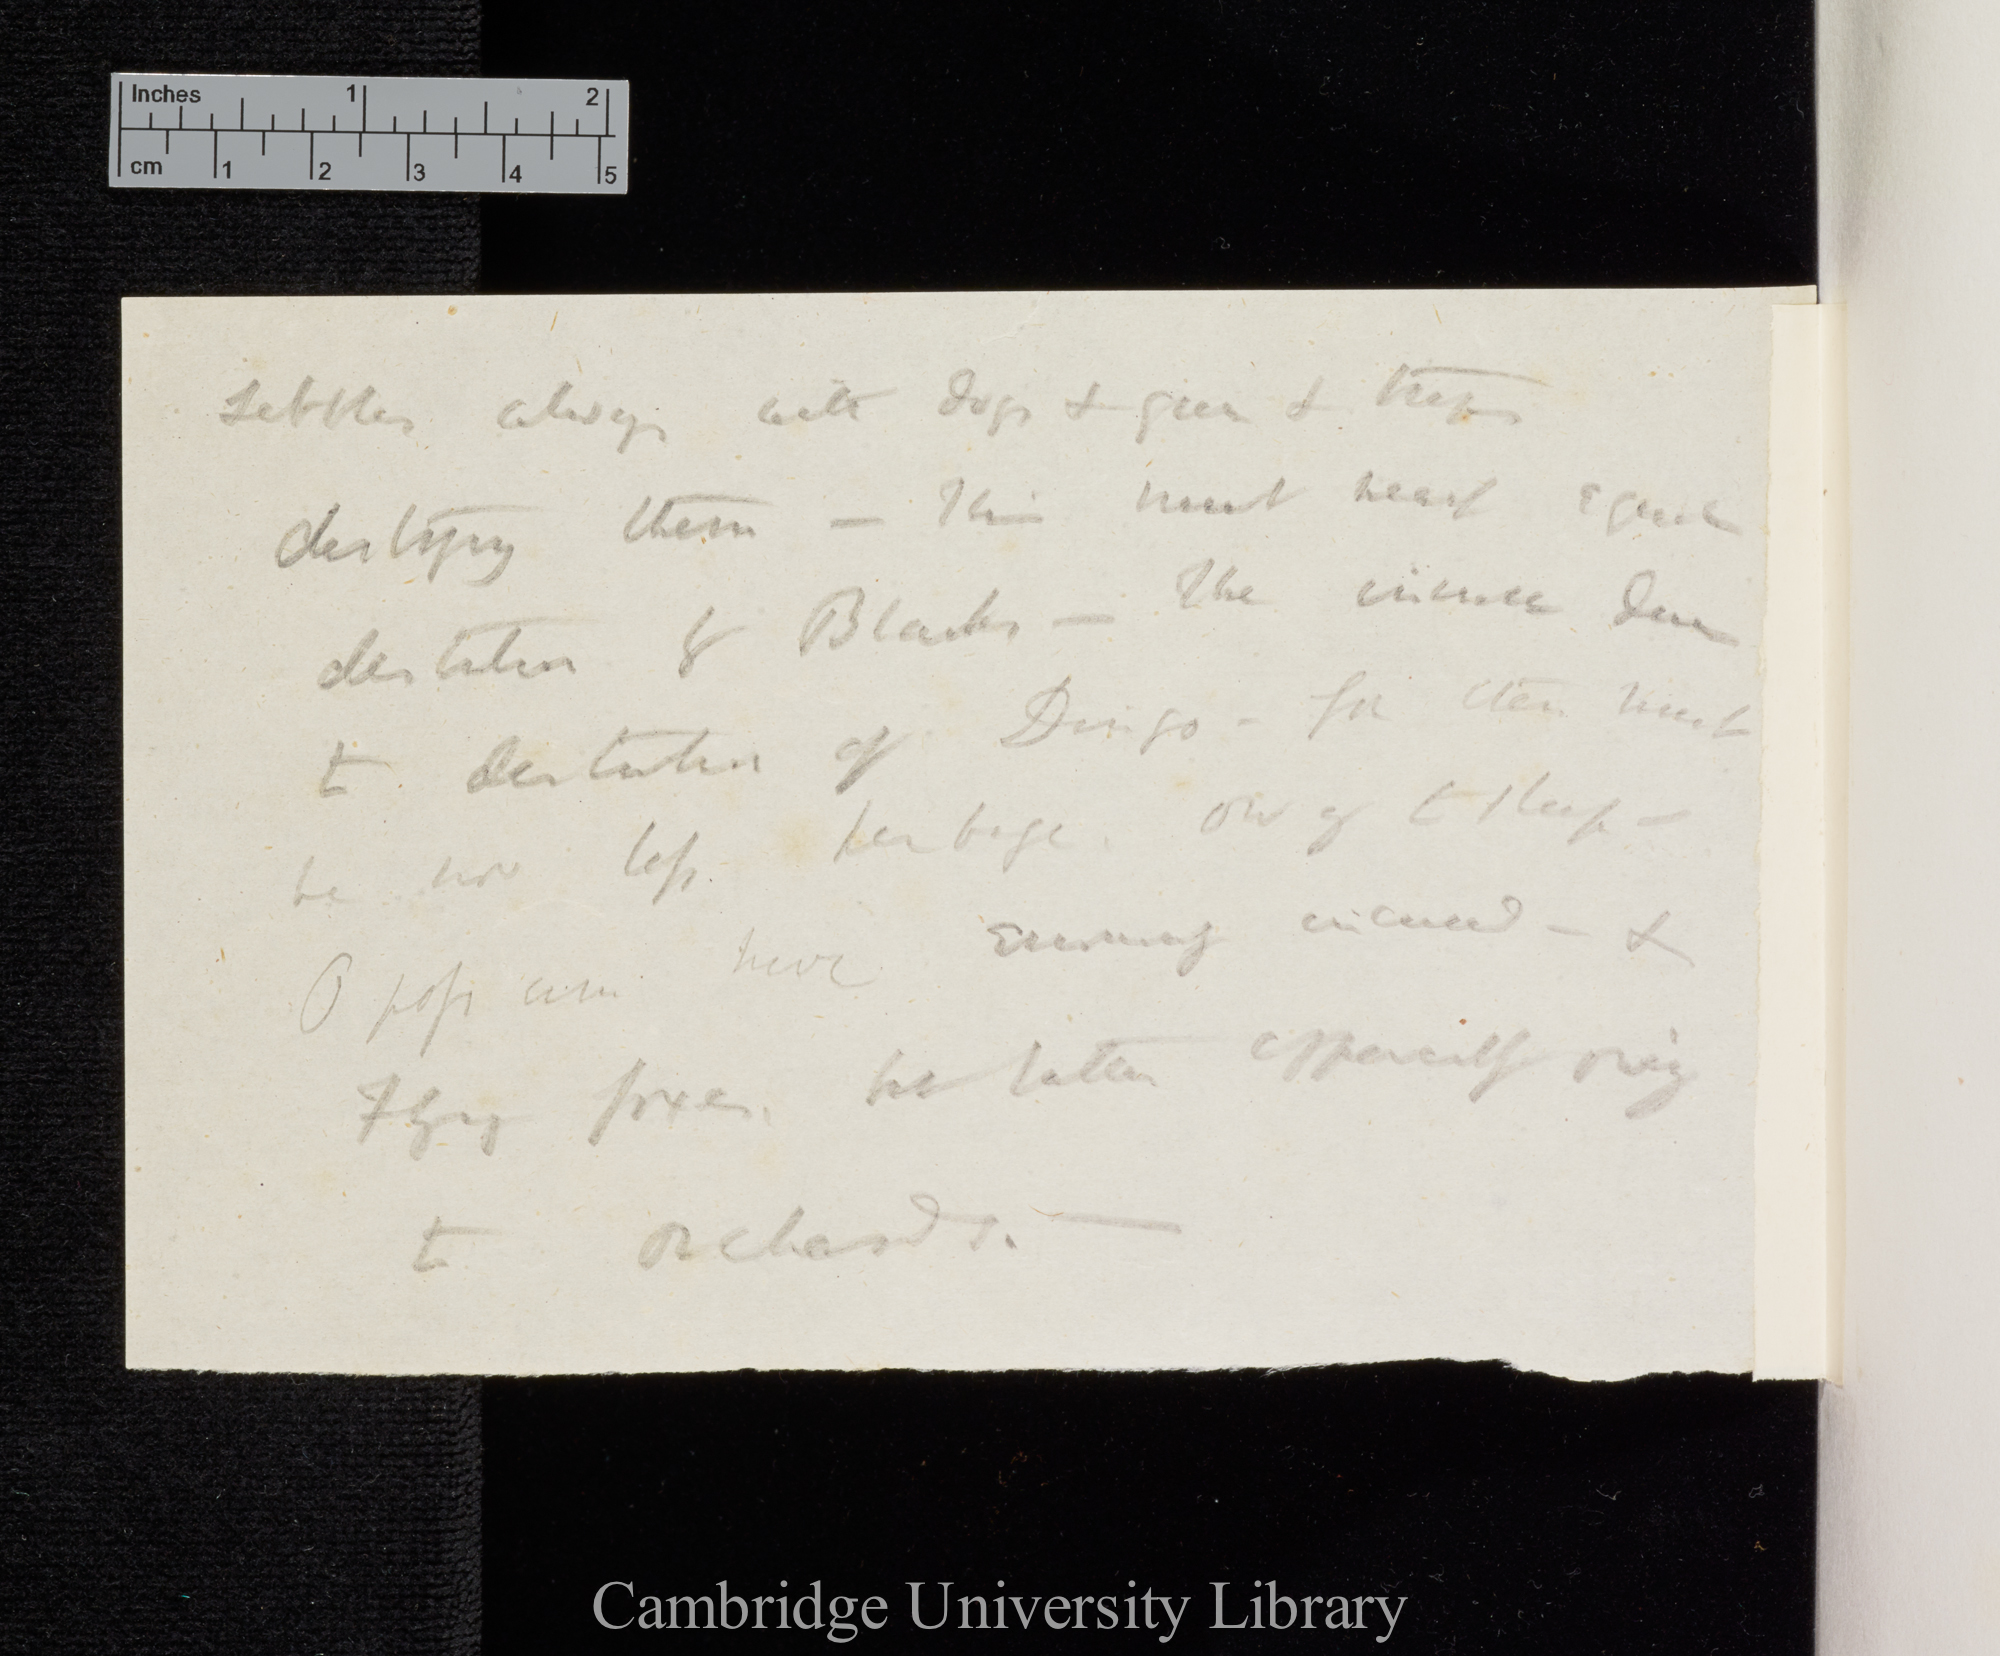 Inches 1 2
cm 1 2 3 4 5
settlers always with dogs & gun & traps
destroying them — This must nearly equal
destruction of Blacks — The increase due
to destruction of Dingo - for there must
be now less herbage. owing to sheep —
Opossum have enormously increased — &
Flying foxes. the latter apparently owing
to orchards. —
Cambridge University Library